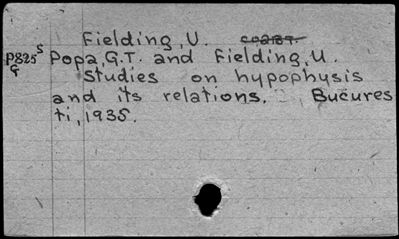 Fielding, U. coaut.
P825 s Popa, G.T. and Fielding, U.
G Studies on hypophysis
and its relations. Bucures
ti, 1935.